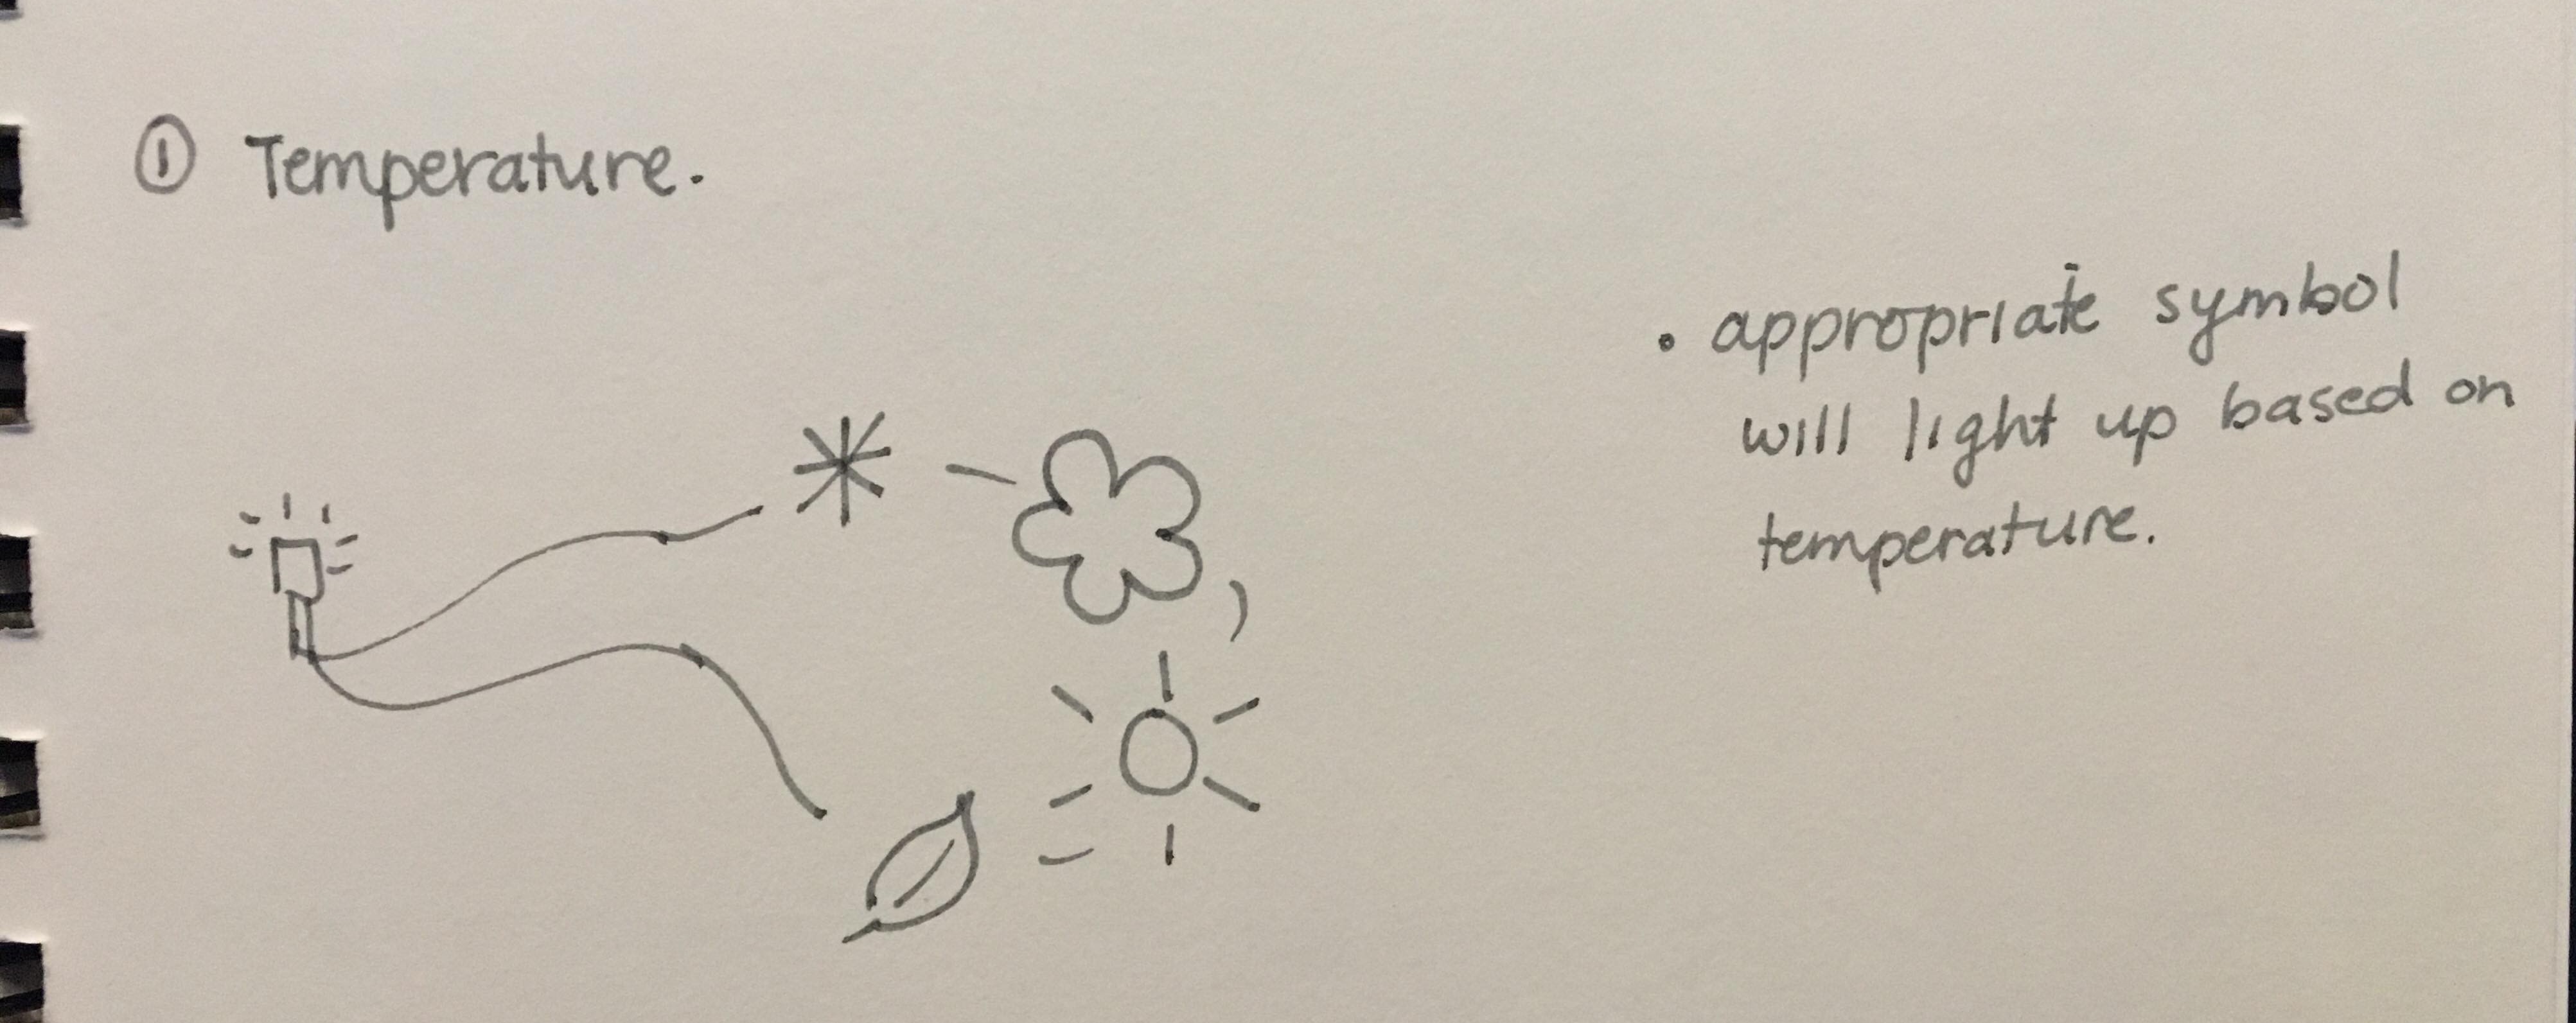 ① Temperature.
• appropriate symbol
will light up based on
temperature.